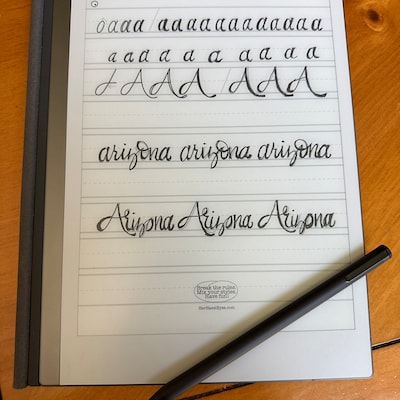 o a a a / a a a a a a a a a a a a
a a a a a a a a a a
/ A A A / A A A
arizona arizona arizona
Arizona Arizona Arizona
Break the rules.
Mix your styles.
Have fun!